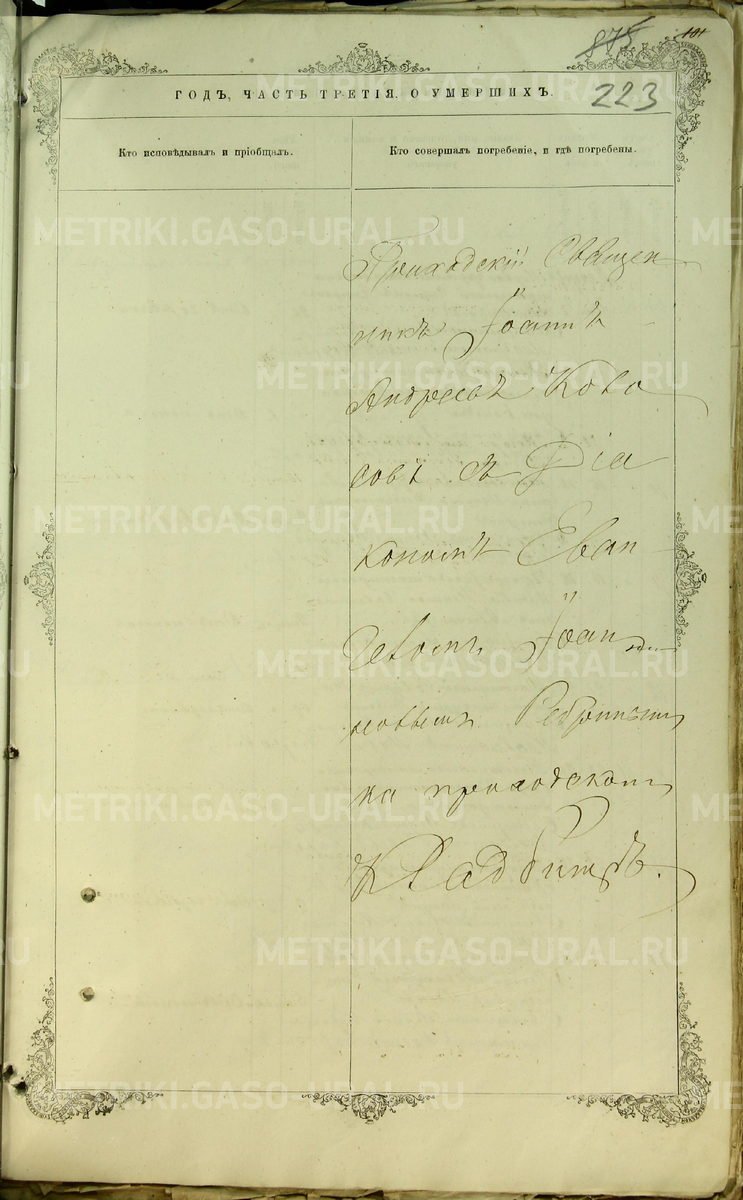 875 101
ГОДЪ, ЧАСТЬ ТРЕТІЯ. О УМЕРШИХЪ.
223
Кто исповѣдывалъ и пріобщалъ.
Кто совершалъ погребеніе, и гдѣ погребены.
Приходскій Священ
никъ Іоаннъ
Андреевъ
съ Діа
кономъ Еван
Іоан
новымъ
на приходскомъ
Кладбищѣ.
METRIKI.GASO-URAL.RU